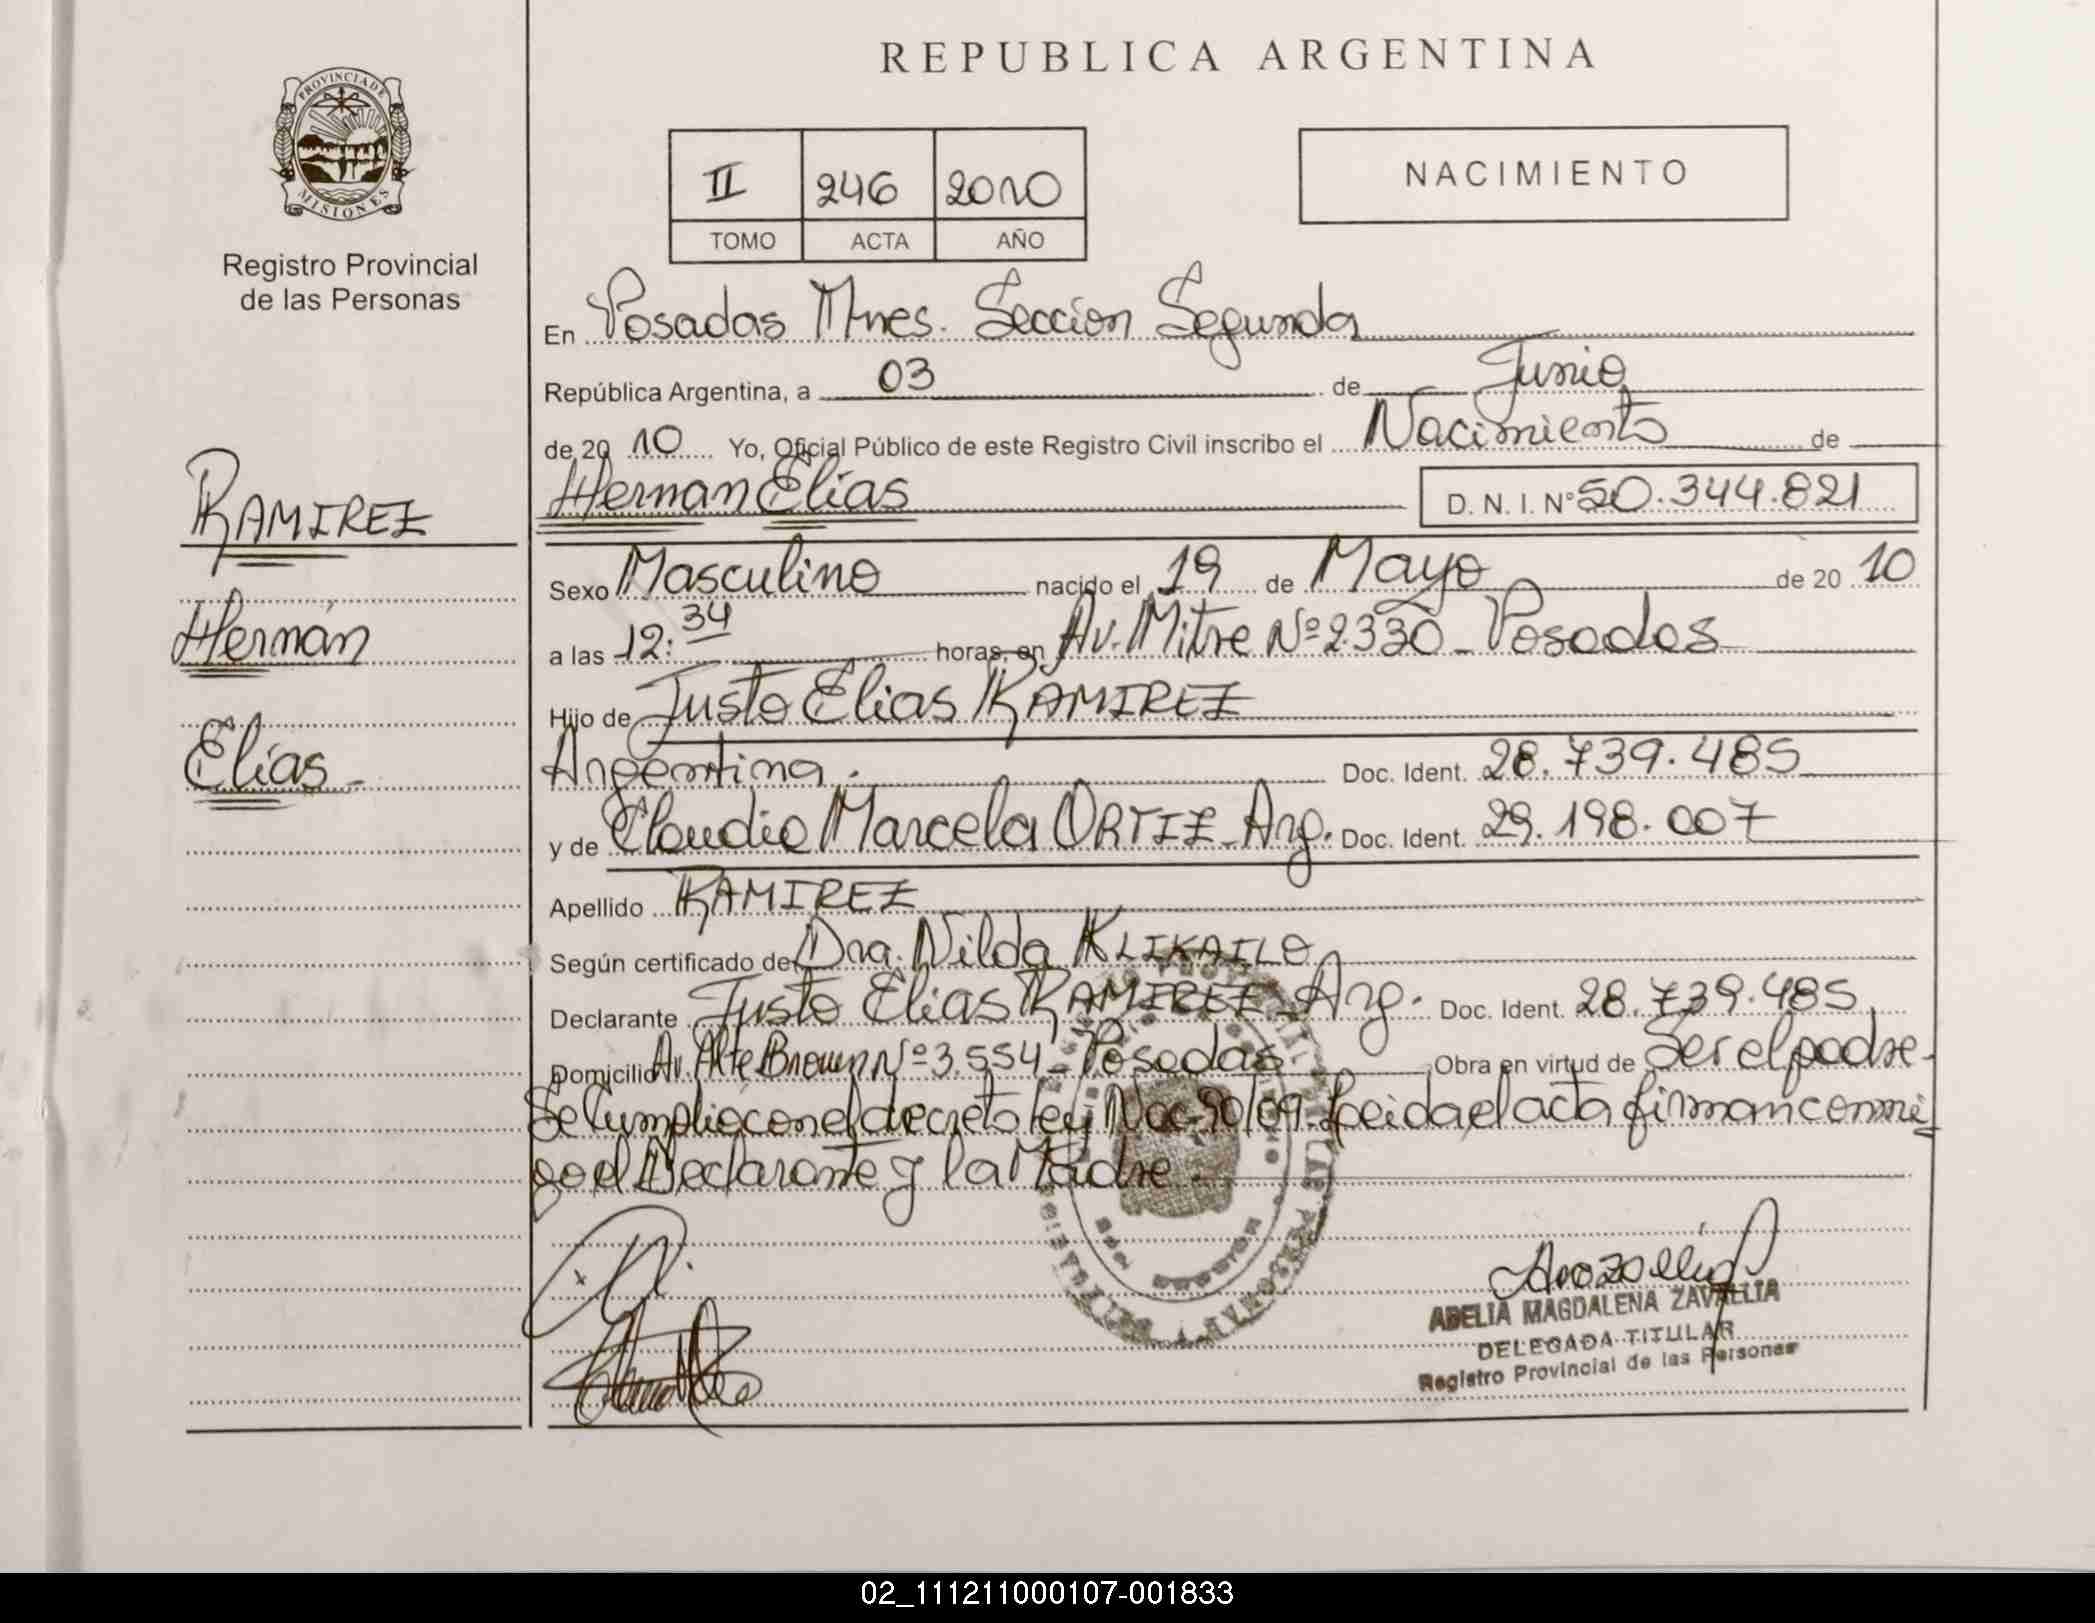 REPUBLICA ARGENTINA
PROVINCIA DE MISIONES
Registro Provincial
de las Personas
II 246 2010
TOMO ACTA AÑO
NACIMIENTO
En Posadas Mnes. Seccion Segunda
República Argentina, a 03 de Junio
de 20 10 Yo, Oficial Público de este Registro Civil inscribo el Nacimiento de
Hernan Elías D. N. I. N° 50.344.821
RAMIREZ
Hernán
Elías -
Sexo Masculino nacido el 19 de Mayo de 20 10
a las 12:34 horas, en Av. Mitre Nº 2330 - Posadas
Hijo de Justo Elias RAMIREZ
Argentina. Doc. Ident. 28.739.485
y de Claudia Marcela ORTIZ - Arg. Doc. Ident. 29.198.007
Apellido RAMIREZ
Según certificado de Dra. Nilda KLIKAILO
Declarante Justo Elias RAMIREZ - Arg. Doc. Ident. 28.739.485
Domicilio Av. Alte Brown Nº 3.554 - Posadas Obra en virtud de Ser el padre -
Se Cumplio con el decreto ley Nac. 90/09. Leida el acta firman conmi
go el Declarante y la Madre -
ADELIA MAGDALENA ZAVALLIA
DELEGADA TITULAR
Registro Provincial de las Personas
02_111211000107-001833